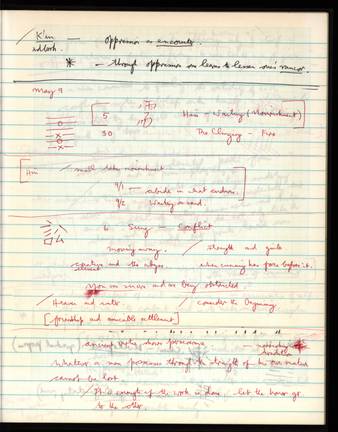 K'un — oppression as encounte.
* — through oppression one learns to lessen one's rancor.
May 9
5 Hsü — Waiting (Nourishment)
30 The Clinging — Fire
Hsü / needs nourishment
9/1 — abide in what endures.
9/2 Waiting on sand.
6 Sung — Conflict
moving away. / strength and guile
creative and the abyss when cunning has force before it.
You are sincere and are being obstructed.
/ Heaven and water. / consider the beginning
[friendship and amicable settlement]
ancient virtue, shows perseverance
Whatever a man possesses through the strength of his own nature
cannot be lost.
/ It is enough if the work is done, let the honor go
to the other.